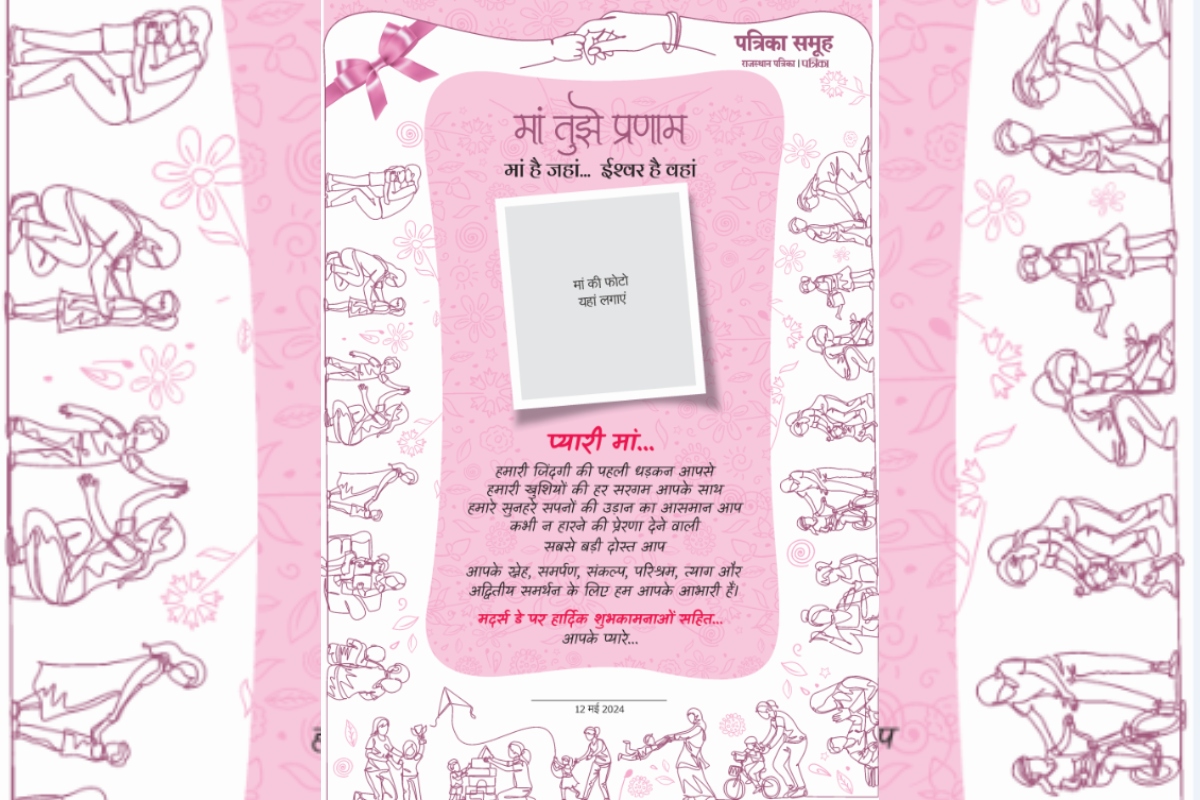 पत्रिका समूह
राजस्थान पत्रिका । पत्रिका
मां तुझे प्रणाम
मां है जहां... ईश्वर है वहां
मां की फोटो
यहां लगाएं
प्यारी मां...
हमारी जिंदगी की पहली धड़कन आपसे
हमारी खुशियों की हर सरगम आपके साथ
हमारे सुनहरे सपनों की उड़ान का आसमान आप
कभी न हारने की प्रेरणा देने वाली
सबसे बड़ी दोस्त आप
आपके स्नेह, समर्पण, संकल्प, परिश्रम, त्याग और
अद्वितीय समर्थन के लिए हम आपके आभारी हैं।
मदर्स डे पर हार्दिक शुभकामनाओं सहित...
आपके प्यारे...
12 मई 2024